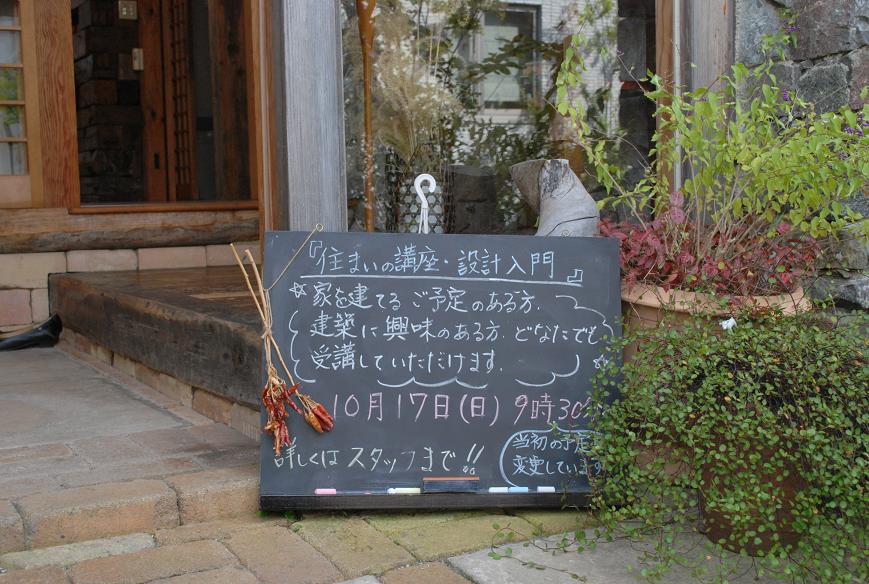 『住まいの講座・設計入門』
☆家を建てるご予定のある方、
建築に興味のある方、どなたでも
受講していただけます。☆
10月17日(日)9時30分
当初の予定を
変更しています
詳しくはスタッフまで!!